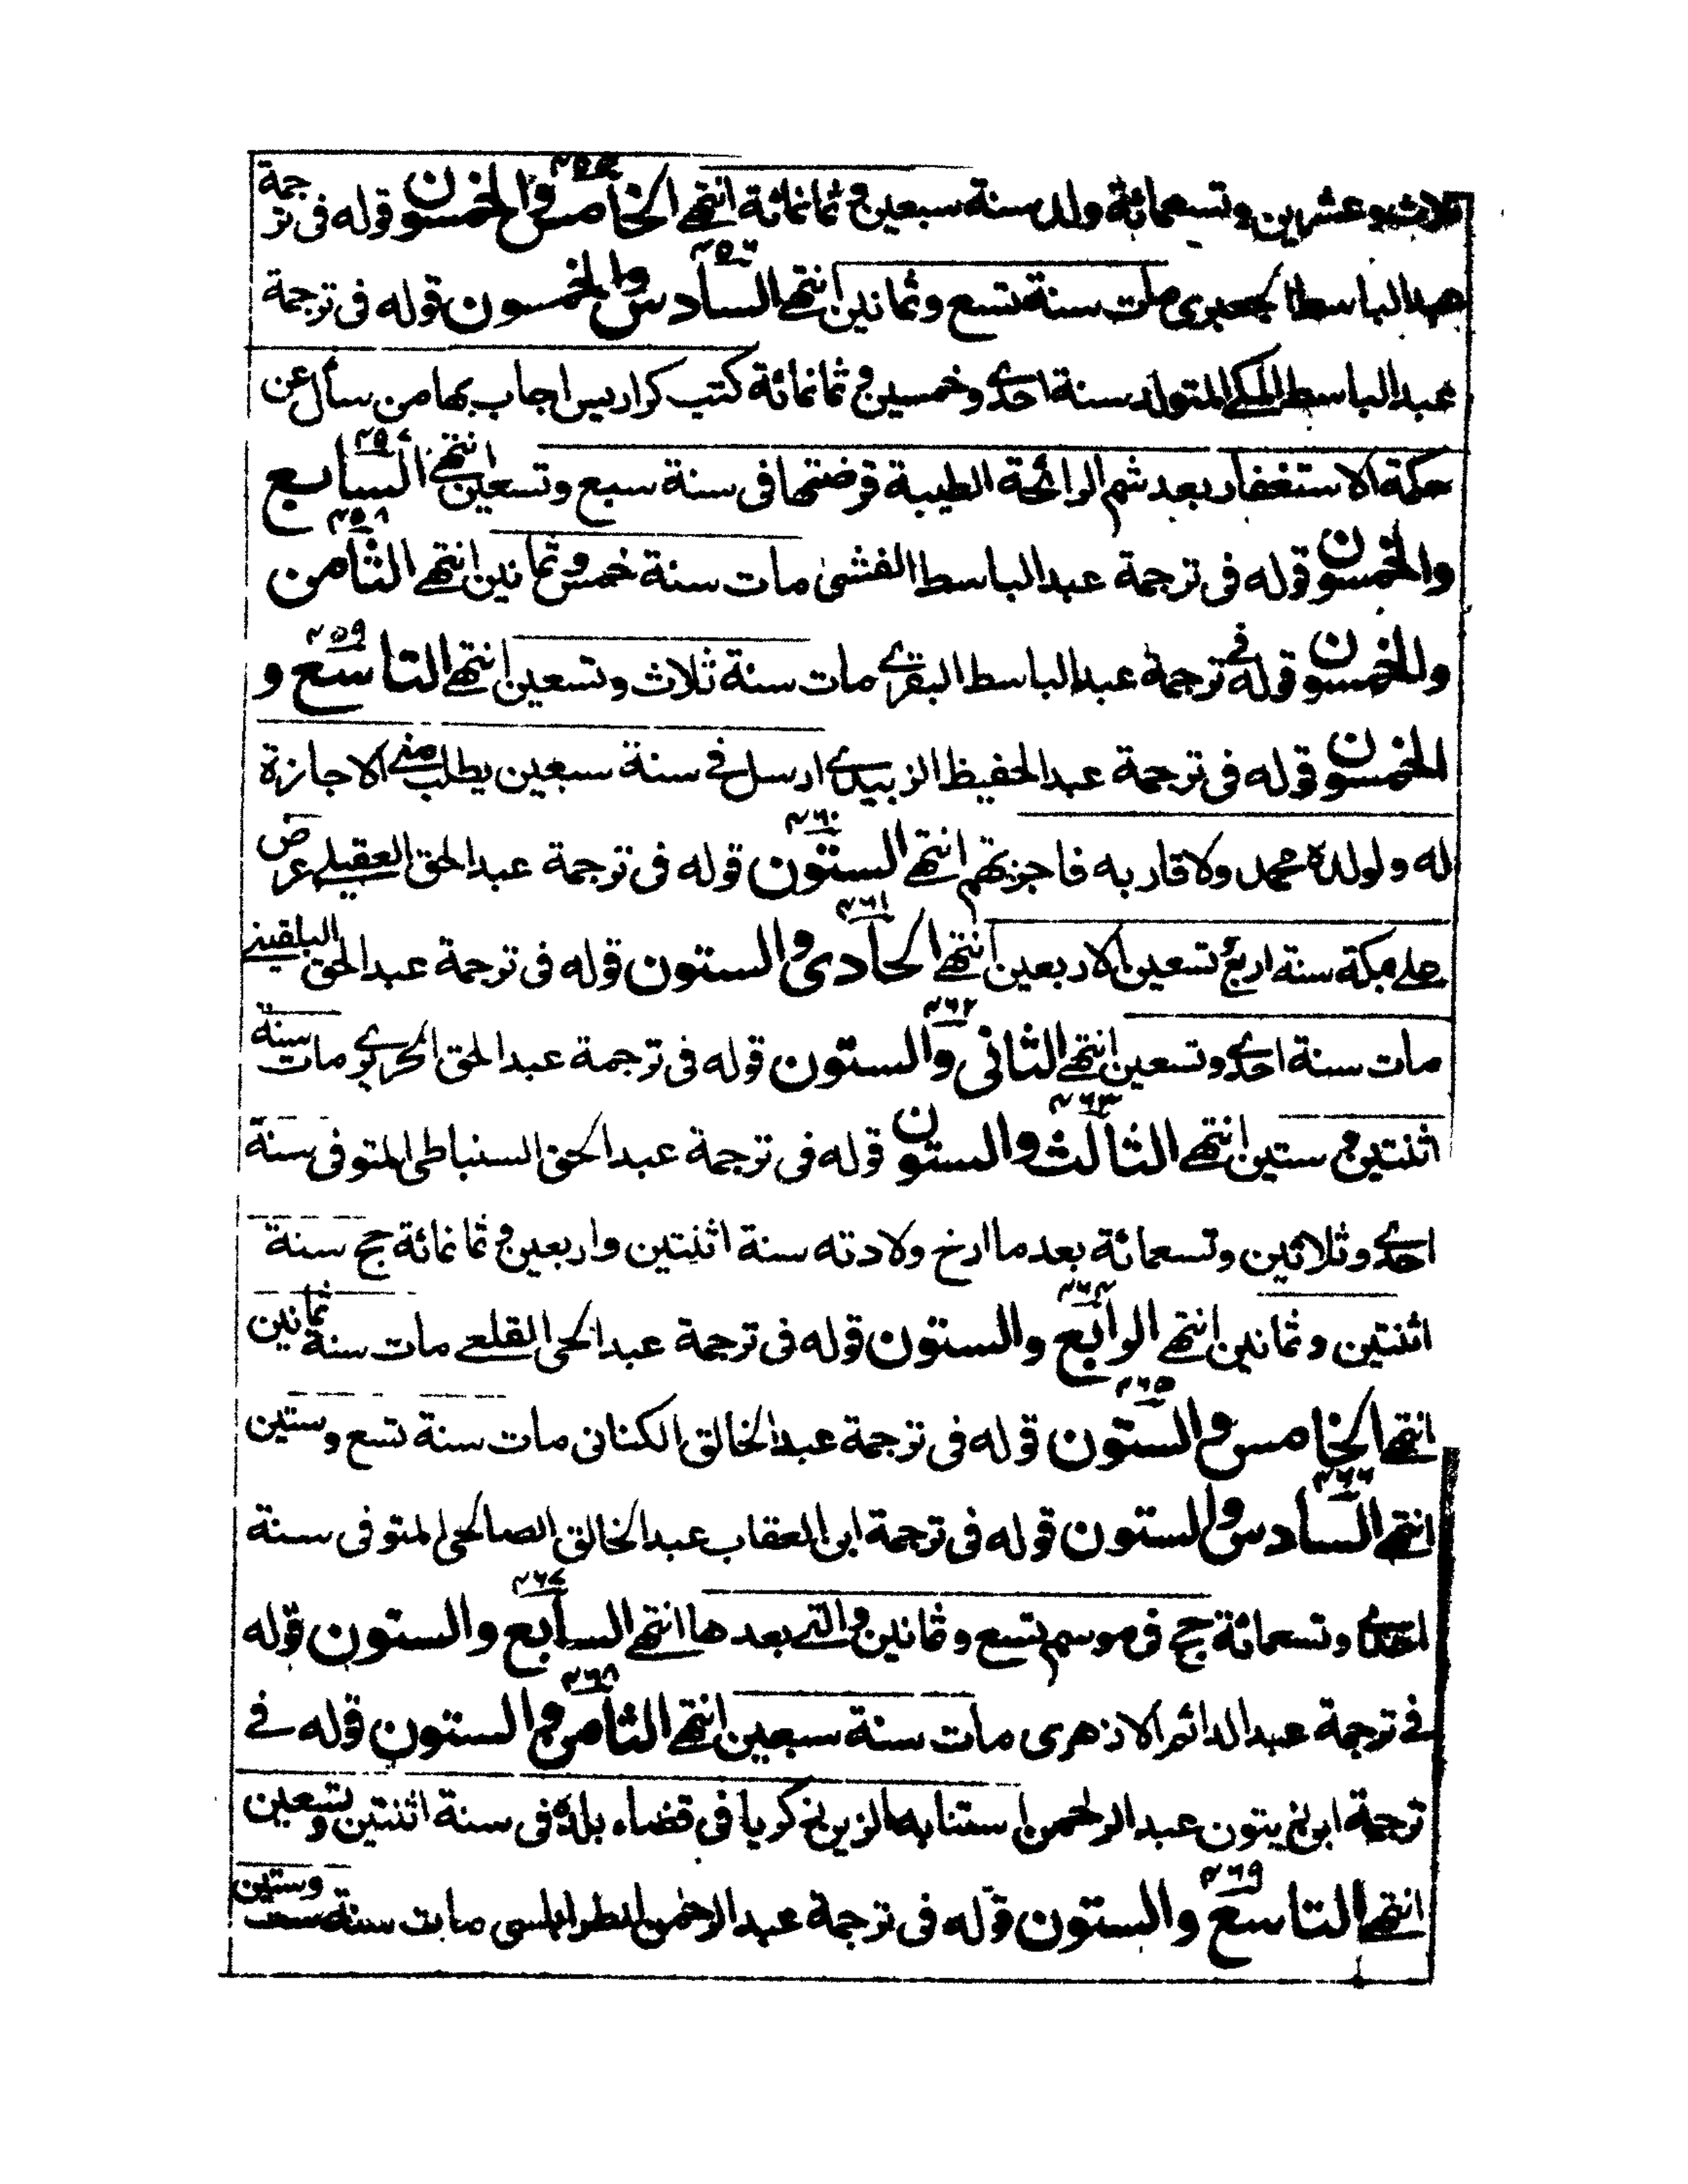 ثلاث وعشرين وتسعمائة ولد سنة سبعين وثمانمائة انتهى الخامس والخمسون قوله فى ترجمة
عبد الباسط الجعبرى مات سنة تسع وثمانين انتهى السادس والخمسون قوله فى ترجمة
عبد الباسط المكى المتولد سنة احدى وخمسين وثمانمائة كتب كراريس اجاب بها من سأل عن
حكمة الاستغفار بعد شم الرائحة الطيبة قرضتها فى سنة سبع وتسعين انتهى السابع
والخمسون قوله فى ترجمة عبد الباسط الفشنى مات سنة خمس وثمانين انتهى الثامن
والخمسون قوله فى ترجمة عبد الباسط البقرى مات سنة ثلاث وتسعين انتهى التاسع و
الخمسون قوله فى ترجمة عبد الحفيظ الزبيدى ارسل فى سنة سبعين يطلب منى الاجازة
له ولولده محمد ولاقاربه فاجزتهم انتهى الستون قوله فى ترجمة عبد الحق العقيلى عرض
على بمكة سنة اربع وتسعين الاربعين انتهى الحادى والستون قوله فى ترجمة عبد الحق البلقينى
مات سنة احدى وتسعين انتهى الثانى والستون قوله فى ترجمة عبد الحق مات سنة
اثنتين وستين انتهى الثالث والستون قوله فى ترجمة عبد الحق السنباطى المتوفى سنة
احدى وثلاثين وتسعمائة بعد ما ارخ ولادته سنة اثنتين واربعين وثمانمائة حج سنة
اثنتين وثمانين انتهى الرابع والستون قوله فى ترجمة عبد الحى القلعى مات سنة ثمانين
انتهى الخامس والستون قوله فى ترجمة عبد الخالق الكنانى مات سنة تسع وستين
انتهى السادس والستون قوله فى ترجمة ابى العقاب عبد الخالق الصالحى المتوفى سنة
احدى وتسعمائة حج فى موسم تسع وثمانين والتى بعدها انتهى السابع والستون قوله
فى ترجمة عبد الدائم الازهرى مات سنة سبعين انتهى الثامن والستون قوله فى
ترجمة ابن زيتون عبد الرحمن استنابه الزين زكريا فى قضاء بلده فى سنة اثنتين وتسعين
انتهى التاسع والستون قوله فى ترجمة عبد الرحمن الطرابلسى مات سنة وستين